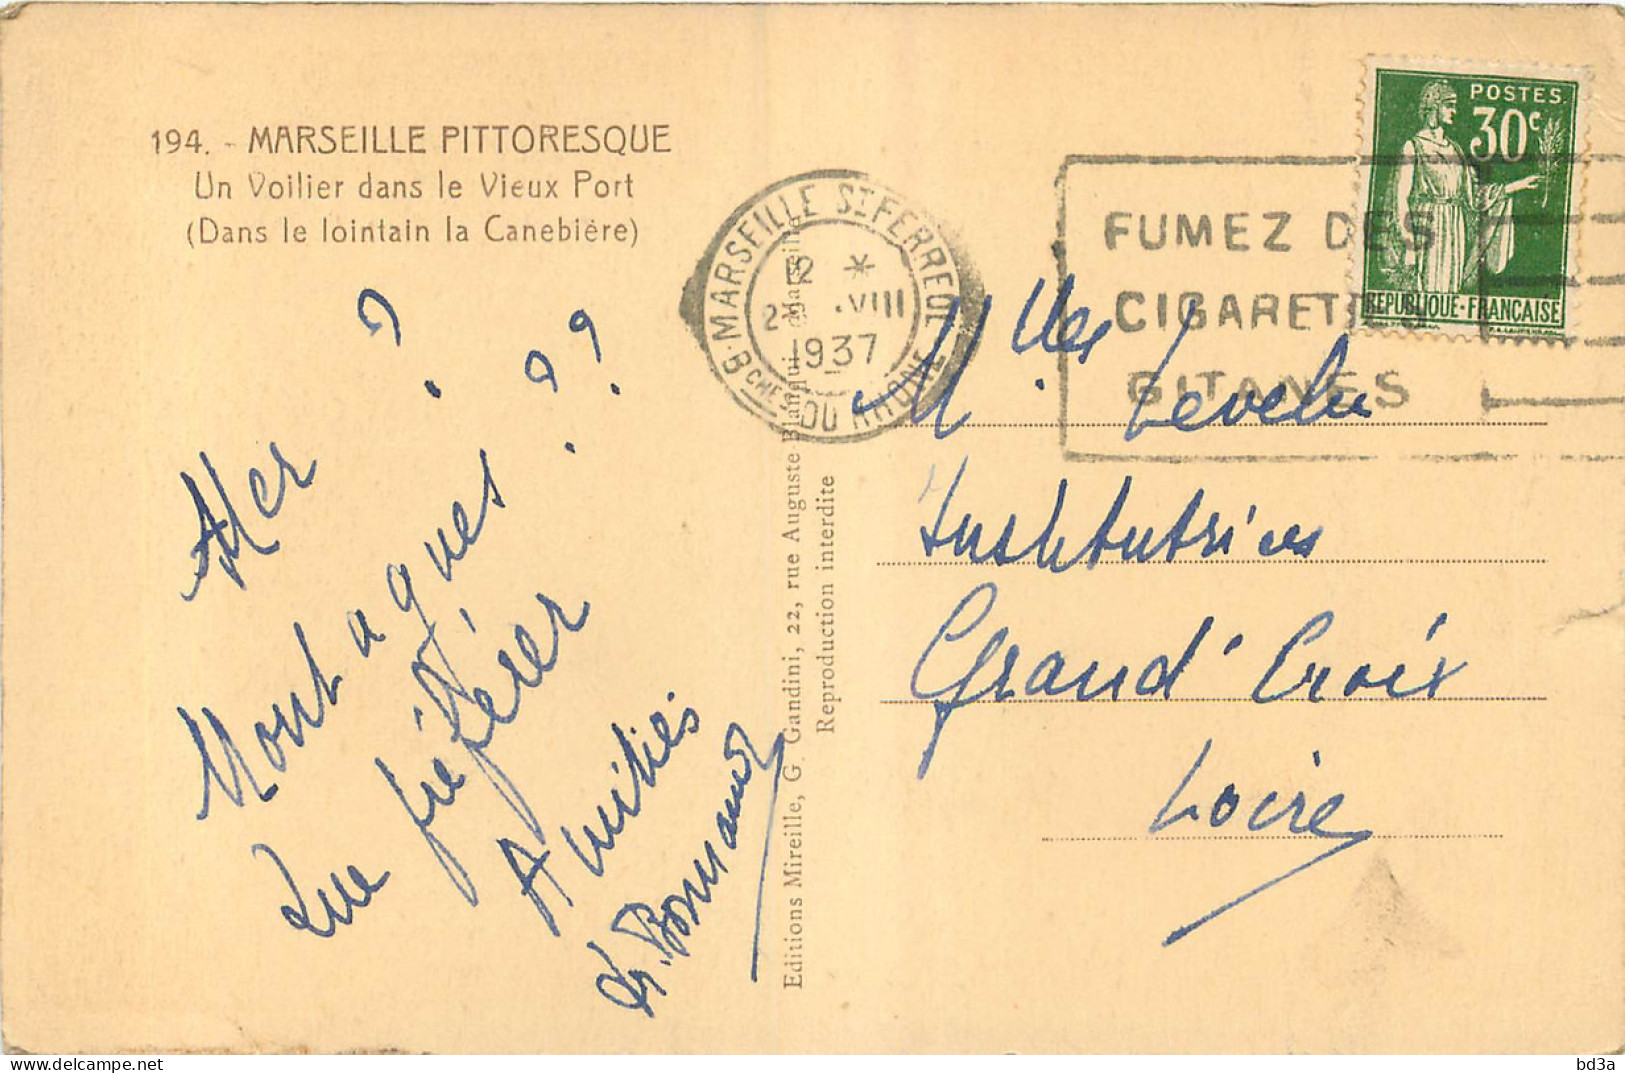 194. - MARSEILLE PITTORESQUE
Un Voilier dans le Vieux Port
(Dans le lointain la Canebière)
Mer ?
Montagnes ??
Que préférer
Amitiés
Editions Mireille, G. Gandini, 22, rue Auguste Blanqui - Marseille
Reproduction interdite
MARSEILLE ST FERREOL
12 *
2 .VIII
1937
BCHES DU RHONE
FUMEZ DES
CIGARETTES
GITANES
POSTES
30c
REPUBLIQUE-FRANÇAISE
Mlles
Institutrices
Grand'Croix
Loire
bd3a